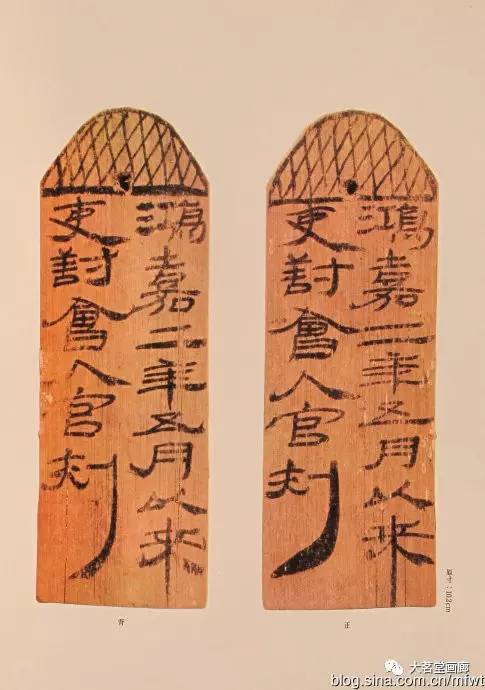 鴻嘉二年五月以來
吏對會入官刺
正
鴻嘉二年五月以來
吏對會入官刺
背
大茗堂画廊
blog.sina.com.cn/mfwt